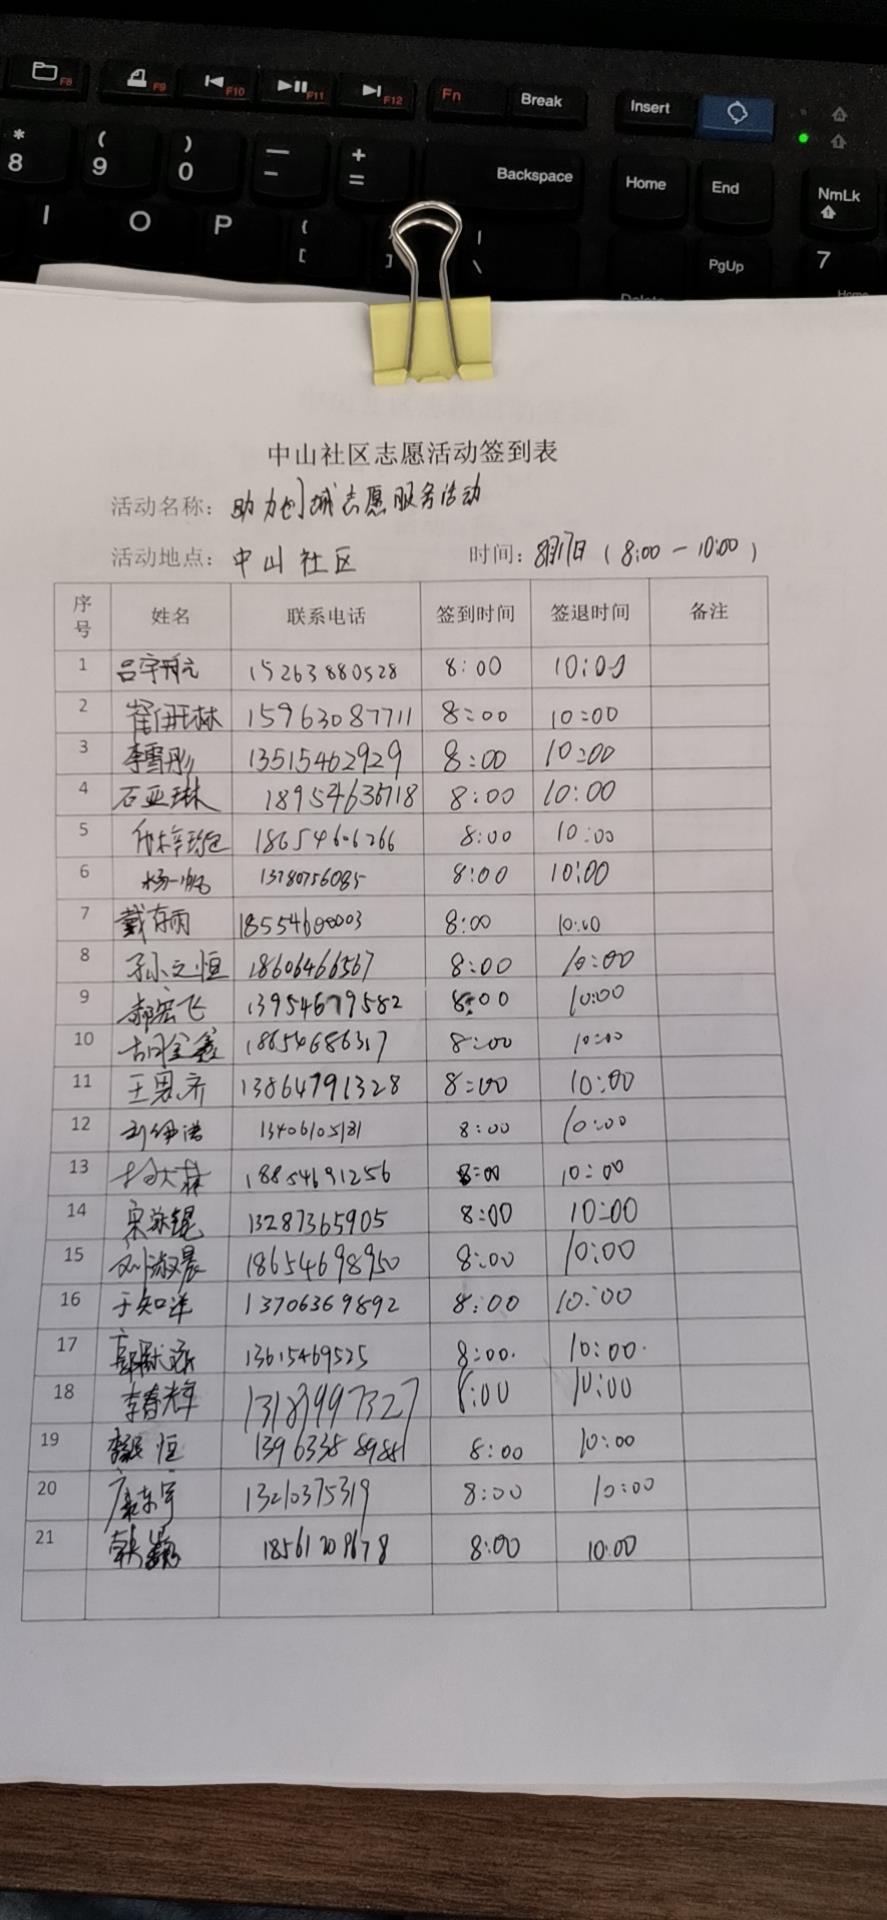 F8 F9 F10 F11 F12 Fn Break Insert
* 8 ( 9 ) 0 — - + = Backspace Home End NmLk
I O P { [ ] | \ PgUp 7
Delete Home
中山社区志愿活动签到表
活动名称：助力创城志愿服务活动
活动地点：中山社区 时间：8月17日（8:00－10:00）
序号 姓名 联系电话 签到时间 签退时间 备注
1 吕宇轩 15263880528 8:00 10:00
2 崔伊林 15963087711 8:00 10:00
3 李雪彤 13515462929 8:00 10:00
4 石亚琳 18954636718 8:00 10:00
5 18654606266 8:00 10:00
6 杨一帆 13780756085 8:00 10:00
7 戴存雨 18554600003 8:00 10:00
8 孙文恒 18606466567 8:00 10:00
9 郝宏飞 13954679582 8:00 10:00
10 胡金鑫 18654686317 8:00 10:00
11 王思齐 13864791328 8:00 10:00
12 刘伊浩 13406105131 8:00 10:00
13 18854691256 8:00 10:00
14 宋泳锟 13287365905 8:00 10:00
15 刘淑晨 18654698950 8:00 10:00
16 于知洋 13706369892 8:00 10:00
17 13615469525 8:00. 10:00.
18 李春辉 13189997327 8:00 10:00
19 恒 13963388988 8:00 10:00
20 康东宇 13210375319 8:00 10:00
21 韩 18561209678 8:00 10:00